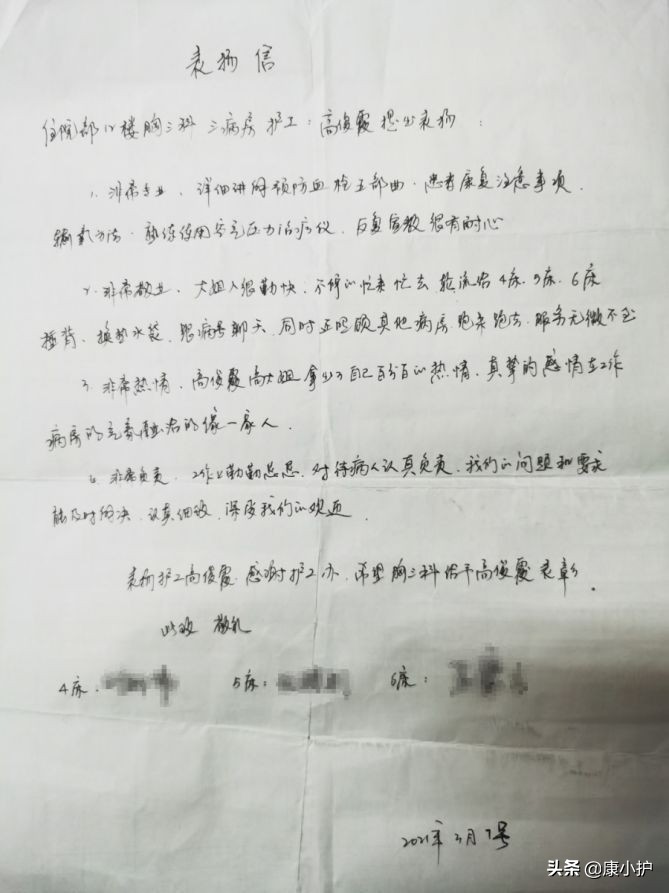 表扬信
住院部12楼胸三科三病房护工：高俊霞提出表扬：
1、非常专业、详细讲解预防血栓五部曲·患者康复注意事项、
输氧方法·熟练使用空气压力治疗仪、反复宣教很有耐心
2、非常敬业、大姐人很勤快、不停的忙来忙去轮流给4床、5床、6床
捶背、换热水袋、跟病号聊天、同时还照顾其他病房跑来跑去、服务无微不至
3、非常热情、高俊霞高大姐拿出了自己百分百的热情、真挚的感情在工作
病房的患者相处的像一家人、
4、非常负责、工作上勤勤恳恳、对待病人认真负责、我们的问题和要求
能及时解决、认真细致、深受我们的欢迎、
表扬护工高俊霞、感谢护工办、希望胸三科给予高俊霞表彰、
此致 敬礼
4床： 5床： 6床：
2021年3月7号
头条 @康小护